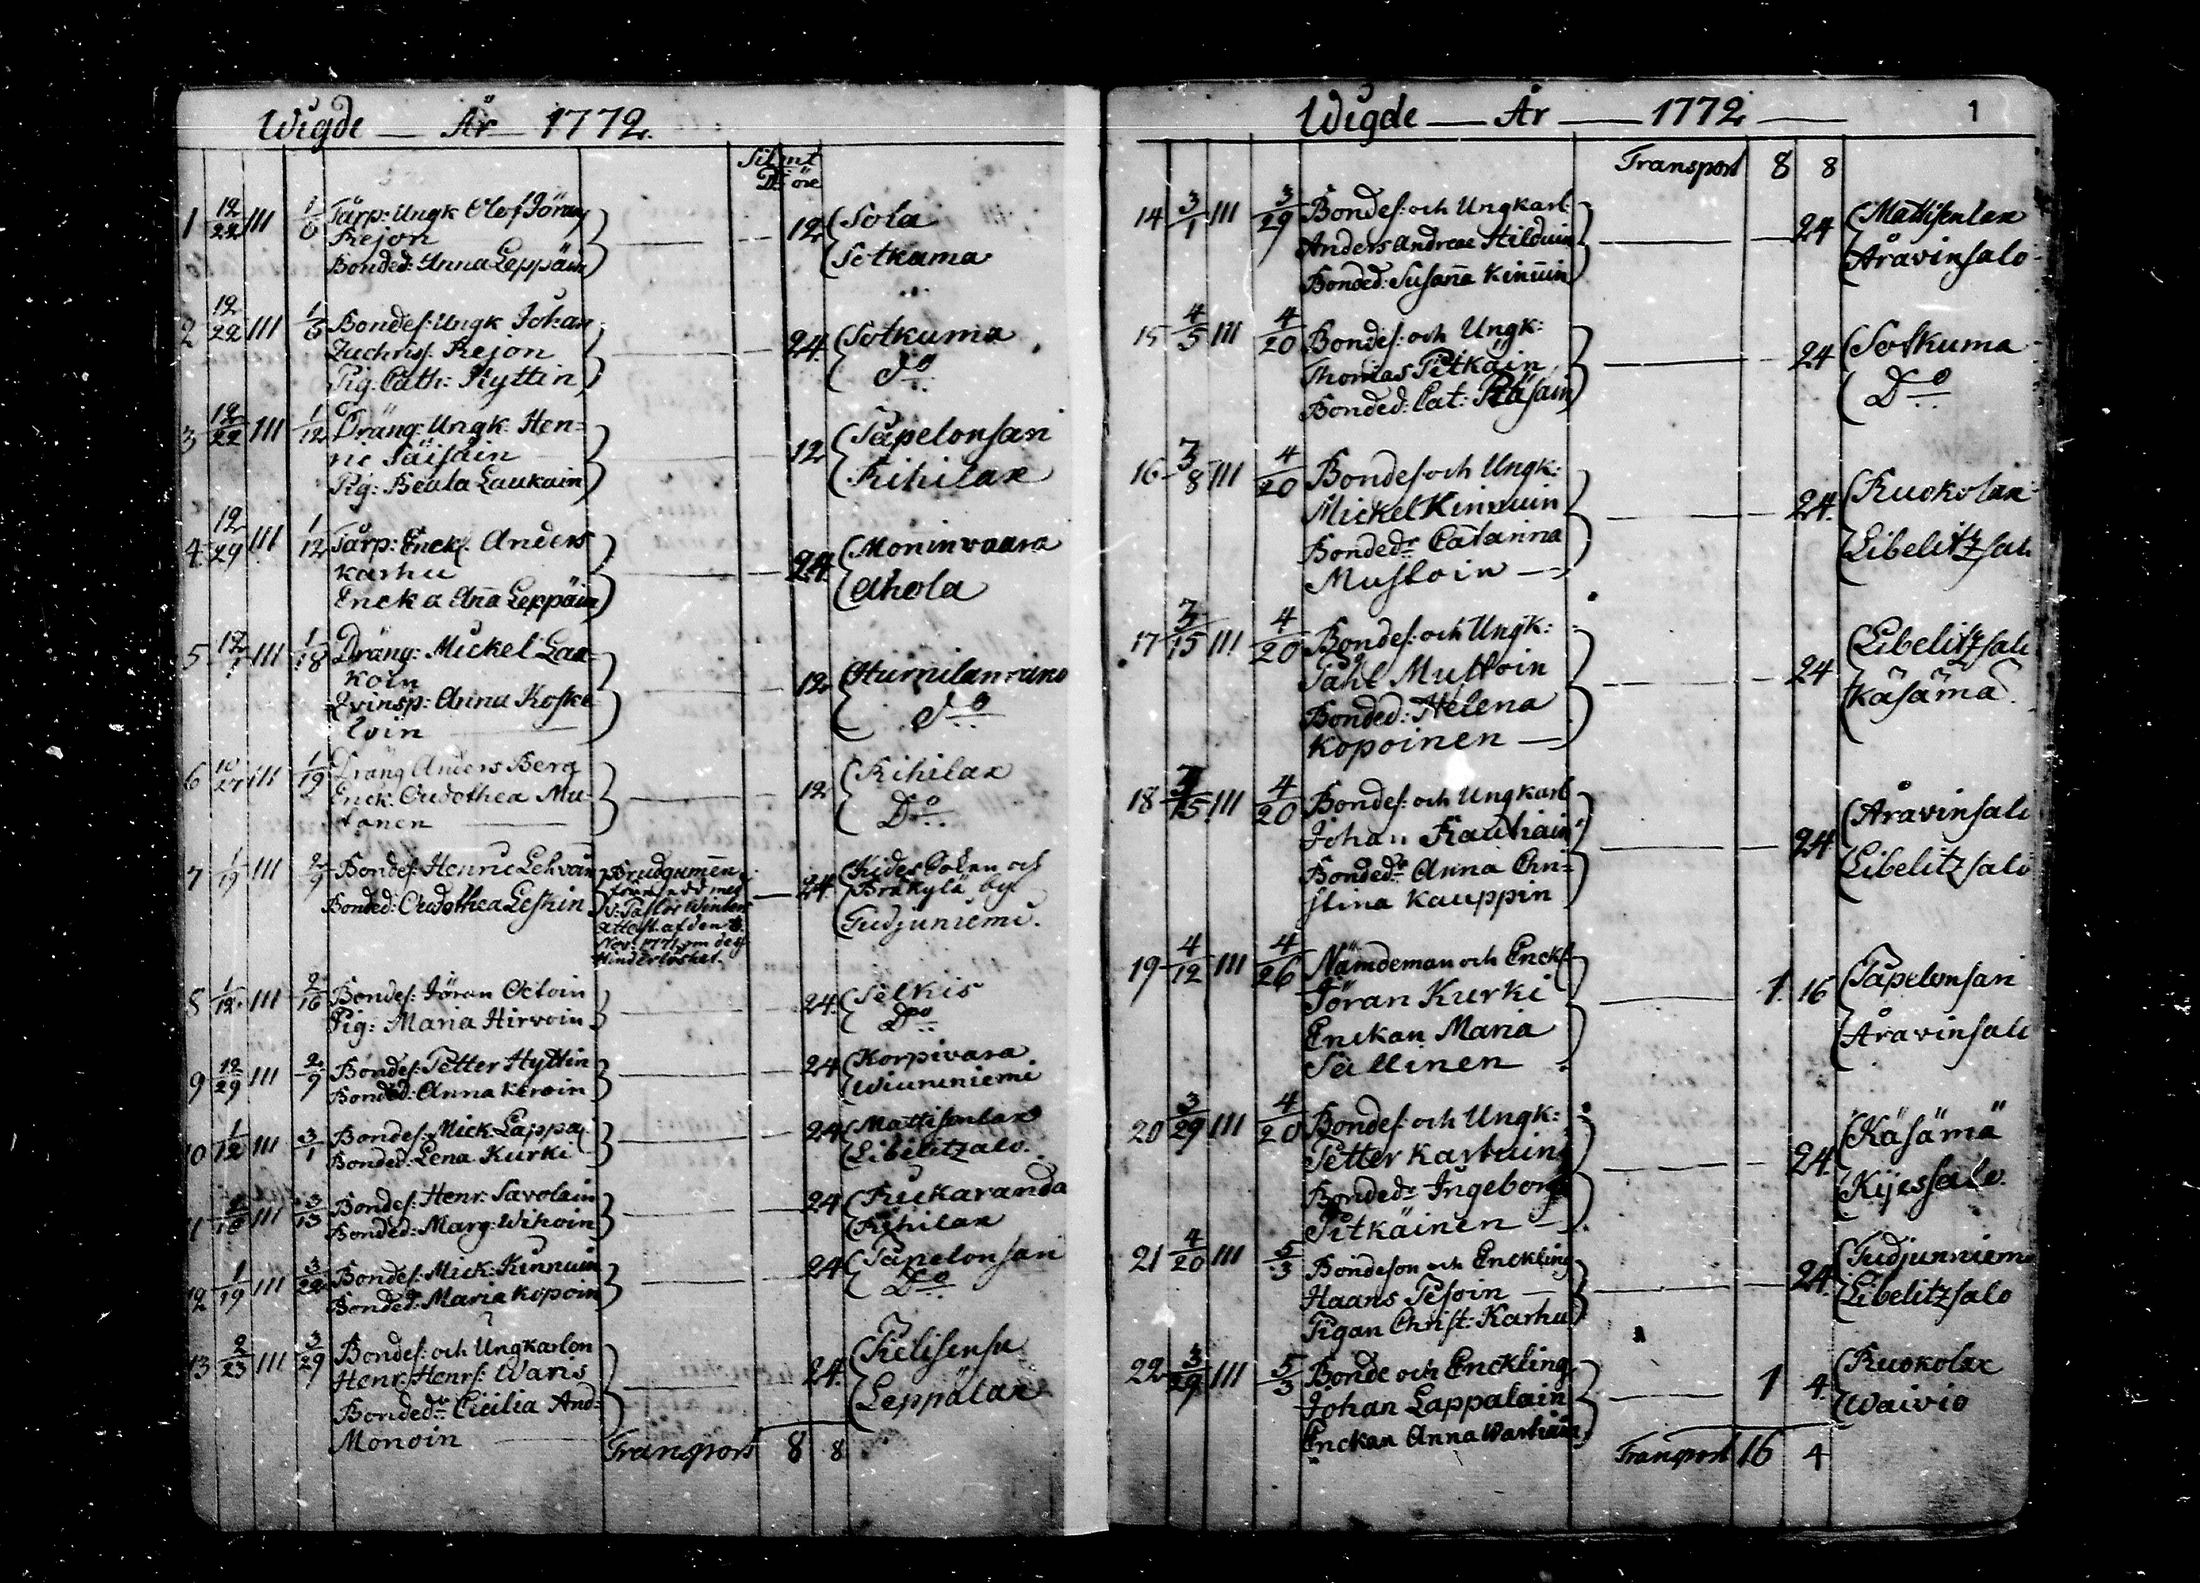 Wigde — År — 1772.
Silmt
Dr öre
1 12/22 III 1/6 Tårp: Ungk Olof Jöran
Rejon
Bonded: Anna Leppäin
12 Sola
Sotkuma
2 12/22 III 1/6 Bondes: Ungk Johan
Zachriss: Rejon
Pig. Cath: Hyttin
24. Sotkuma
Do
3 12/22 III 1/12 Dräng: Ungk. Hen=
ric Päisäin
Pig: Beata Laukain
12 Papelonsari
Rihilax
4 12/29 III 1/12 Tårp: Enck. Anders
Karhu
Encka Ana Leppäin
24. Moninvaara
Ahola
5 III 1/18 Dräng: Mickel Lau=
koin
Anna Koske
loin
12 Do
6 III 1/19 Dräng Anders Berg
Enck. Oudothea Mu=
tonen
12 Rihilax
Do
7 1/19 III 2/9 Bondes: Henric Lehvän
Bonded: Oudothea Leskin
Brudgumen
med
Pastor
attest. af den
Nov: 1771, om des
Hinderlöshet.
24. Kides Soken och
Bräkylä by
Tudjuniemi.
8 1/12 III 2/16 Bondes: Jöran Octoin
Pig: Maria Hirvoin
24. Selkis
Do
9 12/29 III 2/9 Bondes: Petter Hyttin
Bonded: Anna Keroin
24 Korpivara
Wiuruniemi
10 1/12 III 3/1 Bondes: Mick Lappa
Bonded: Lena Kurki
24 Mattisenlax
Libelitzalo.
III 3/13 Bondes: Henr: Savolain
Bonded: Marg: Wihoin
24 Kuckaranda
Rihilax
12 1/19 III 3/22 Bondes: Mick: Kinnuin
Bonded: Maria Kopoin
24 Papelonsari
Do
13 2/23 III 3/29 Bondes: och Ungkarlon
Henr: Henrs: Waris
Bondedr Cicilia And:
Monoin
24. Pielisensu
Leppälax
Transport 8 8
Wigde — År — 1772
1
Transport 8 8
14 3/1 III 3/29 Bondes: och Ungkarl:
Anders Andreae Hilduin
Bonded: Susana Kinuin
24 Mattisenlax
Åravinsalo
15 4/5 III 4/20 Bondes: och Ungk:
Thomas Pitkäin
Bonded: Cat: Räsäin
24 Sotkuma
Do
16 3/8 III 4/20 Bondes: och Ungk:
Mickel Kinnuin
Bondedr Catarina
Mustoin
24. Ruokolax
Libelitzsal
17 3/15 III 4/20 Bondes: och Ungk:
Påhl Mustoin
Bonded: Helena
Kopoinen
24 Libelitzsalo
Käsämä.
18 3/15 III 4/20 Bondes: och Ungkarl
Johan Rautiain
Bondedr Anna Chri=
stina Kauppin
24 Åravinsalo
Libelitzsalo
19 4/12 III 4/26 Nämdeman och Enckl
Jöran Kurki
Enckan Maria
Sallinen
1. 16 Papelonsari
Åravinsalo
20 3/29 III 4/20 Bondes: och Ungk:
Petter Kartuin
Bondedr Ingeborg
Pitkäinen
24. Käsämä
Kijessalo.
21 4/20 III 5/3 Bondeson och Enckling
Haans Pesoin
Pigan Christ: Karhu
24. Tudjunniemi
Libelitzsalo
22 3/29 III 5/3 Bonde och Enckling
Johan Lappalain
Enckan Anna Wartiain
1 4. Ruokolax
Waivio
Transport 16 4